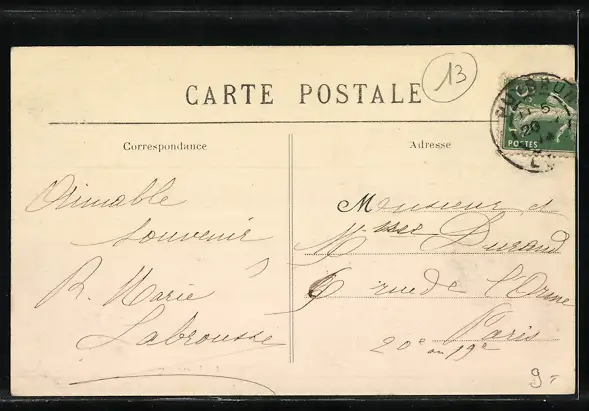 13
CARTE POSTALE
POSTES
Correspondance
Adresse
Aimable
souvenir
R. Marie
Labrousse
Monsieur et
Mme Durand
6 rue de l'Orme
Paris
20e ou 19e
9.-